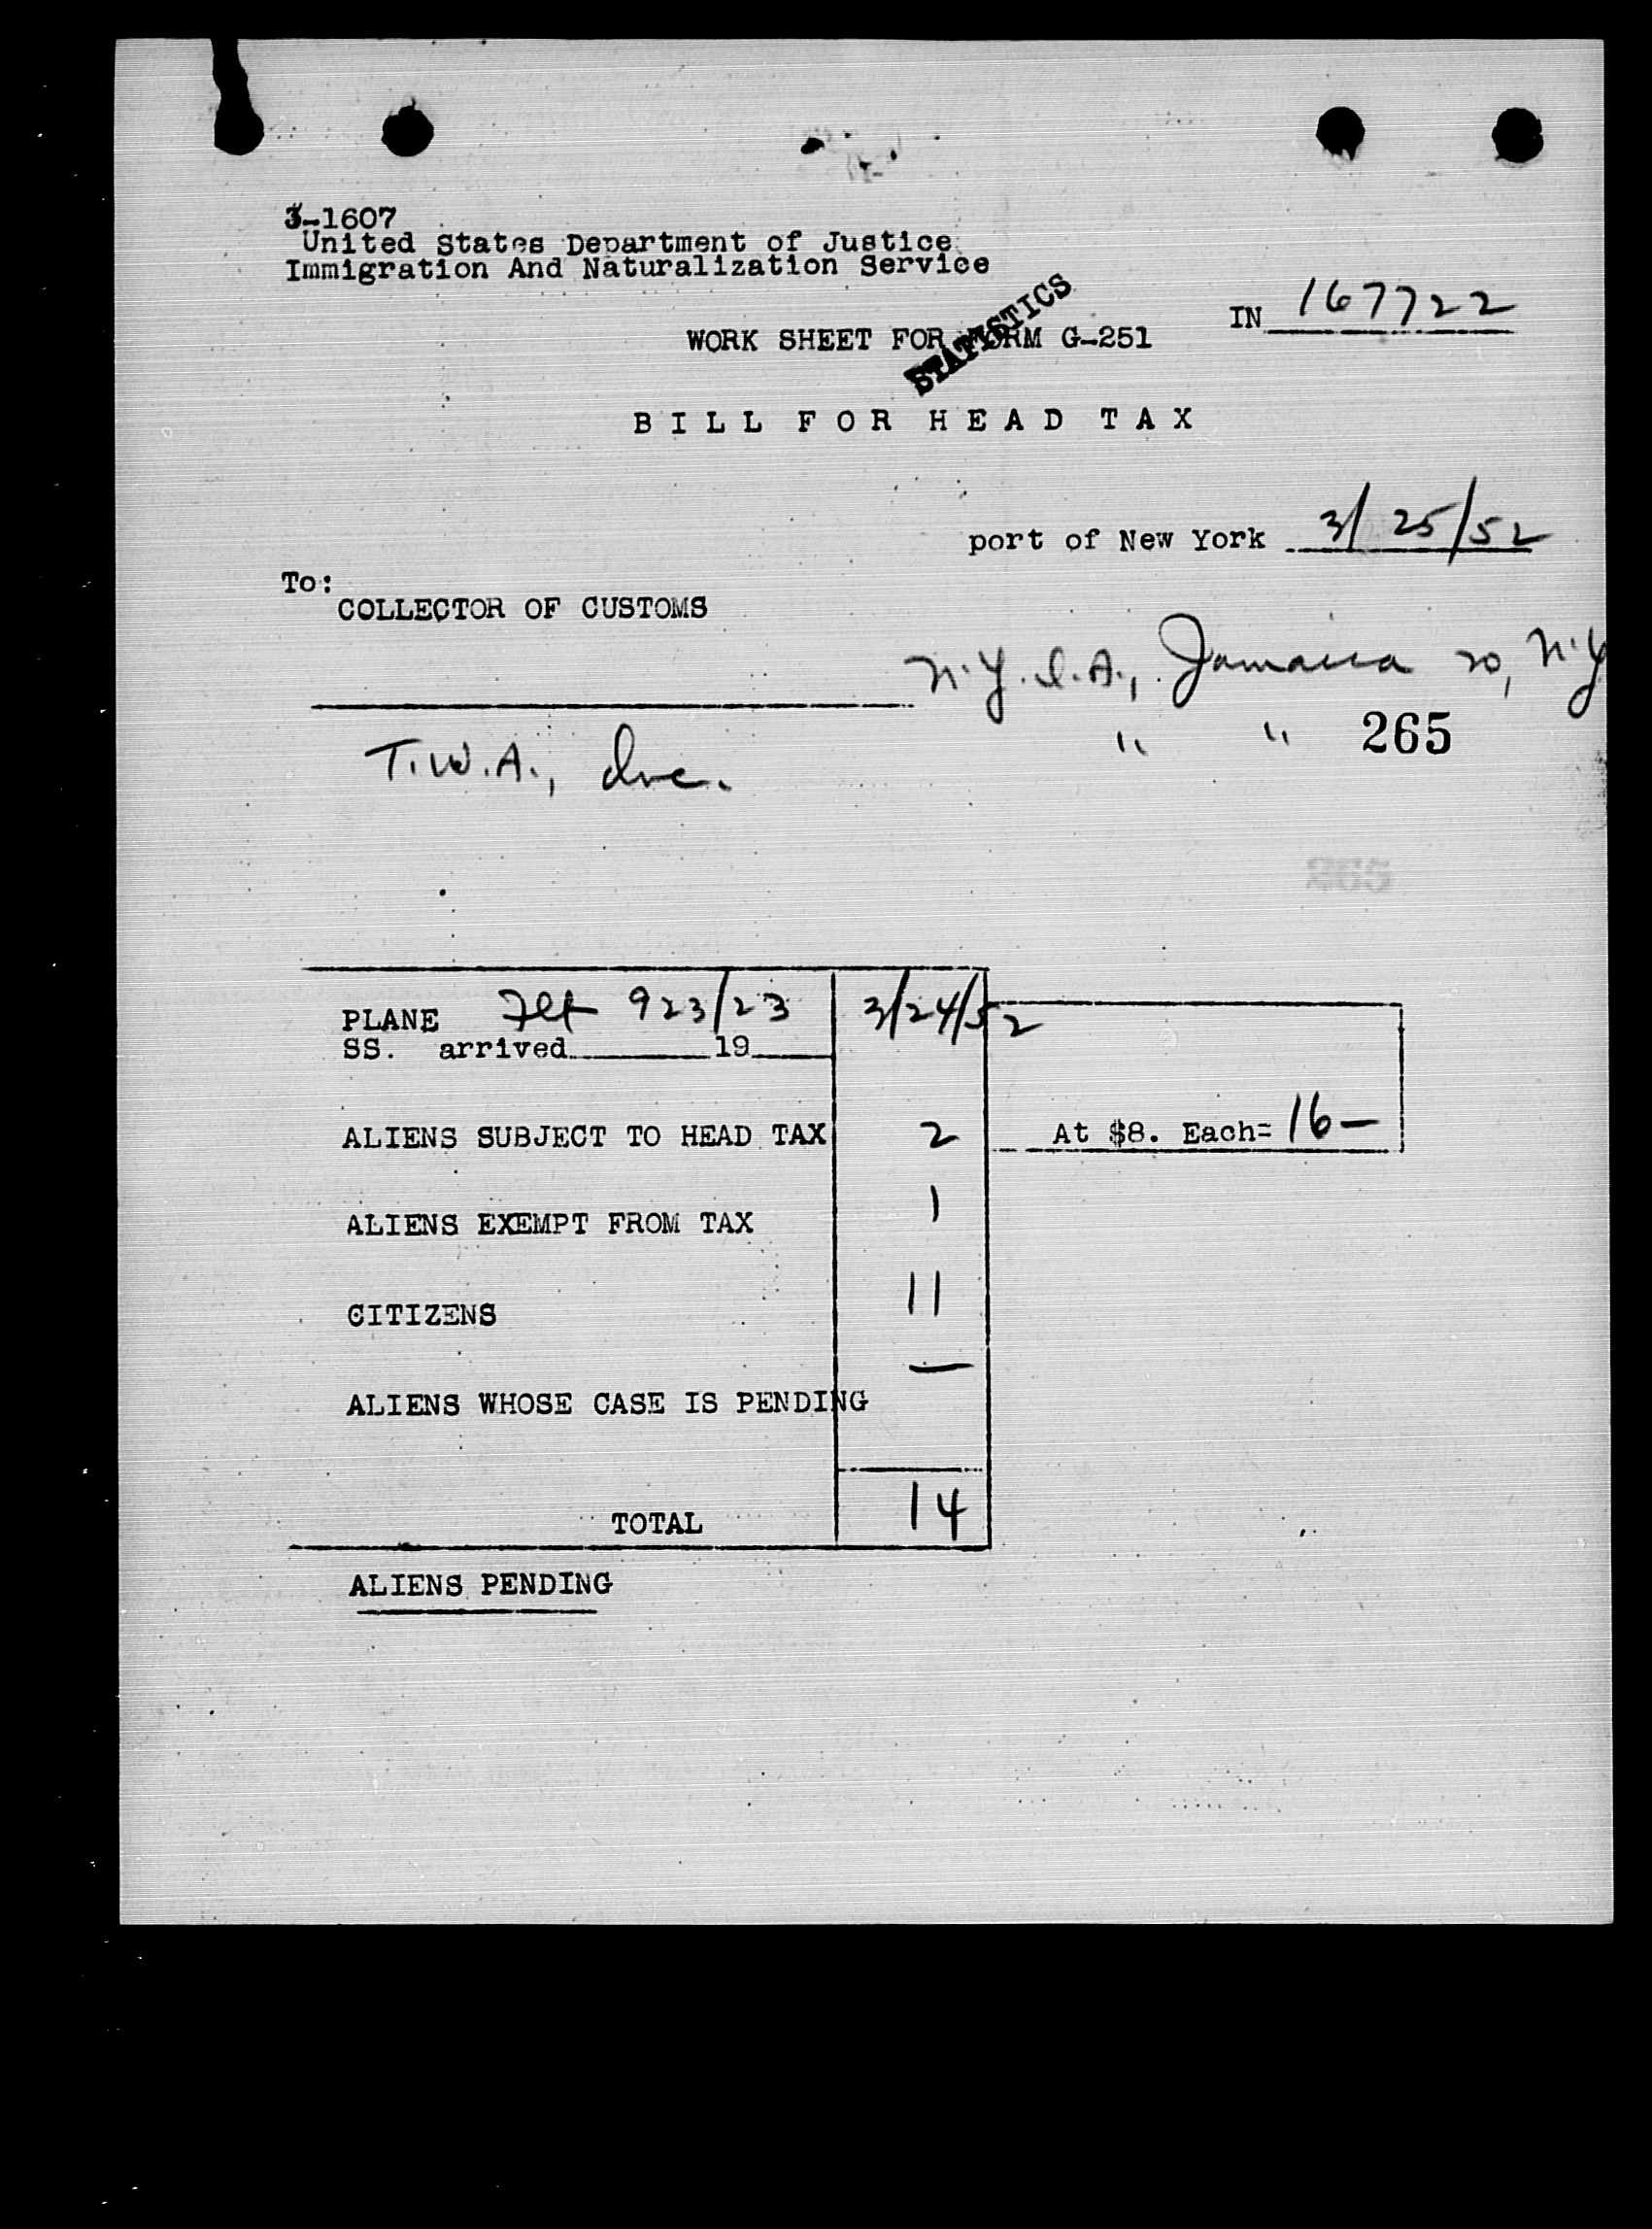 3-1607
United States Department of Justice
Immigration And Naturalization Service
IN 167722
WORK SHEET FOR FORM G-251
STATISTICS
BILL FOR HEAD TAX
port of New York 3/25/52
To:
COLLECTOR OF CUSTOMS
N.Y.I.A., Jamaica 20, N.Y
T.W.A., Inc. " " 265
265
PLANE Flt 923/23 3/24/52
SS. arrived 19
ALIENS SUBJECT TO HEAD TAX 2 At $8. Each= 16—
ALIENS EXEMPT FROM TAX 1
CITIZENS 11
ALIENS WHOSE CASE IS PENDING —
TOTAL 14
ALIENS PENDING